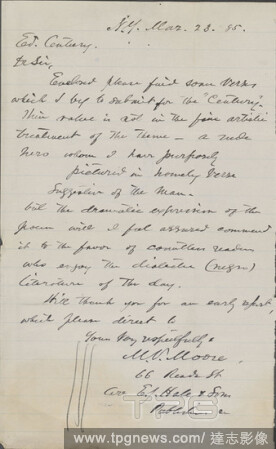 N.Y. Mar. 23. 85.
Ed. Century.
Dr Sir,
Enclosed please find some verses
which I beg to submit for the "Century".
Their value is not in the fine artistic
treatment of the theme — a rude
hero whom I have purposely
pictured in homely verse
suggestive of the man.
but the dramatic expression of the
poem will I feel assured commend
it to the favor of countless readers
who enjoy the dialectic (negro)
literature of the day.
thank you for an early report,
which please direct to
Yours very respectfully
M. V. Moore
66 Reade St
Care E. Hale & Son
Publishers
TPG
www.tpgnews.com / 達志影像